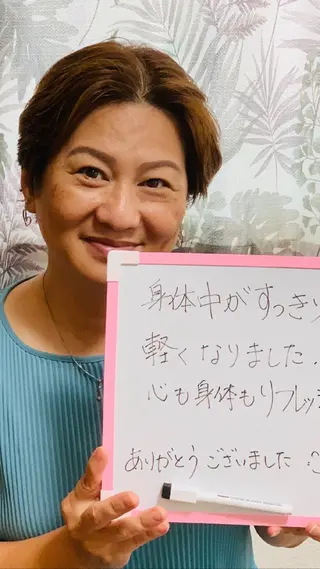 身体中がすっきり
軽くなりました.
心も身体もリフレッシ
ありがとうございました